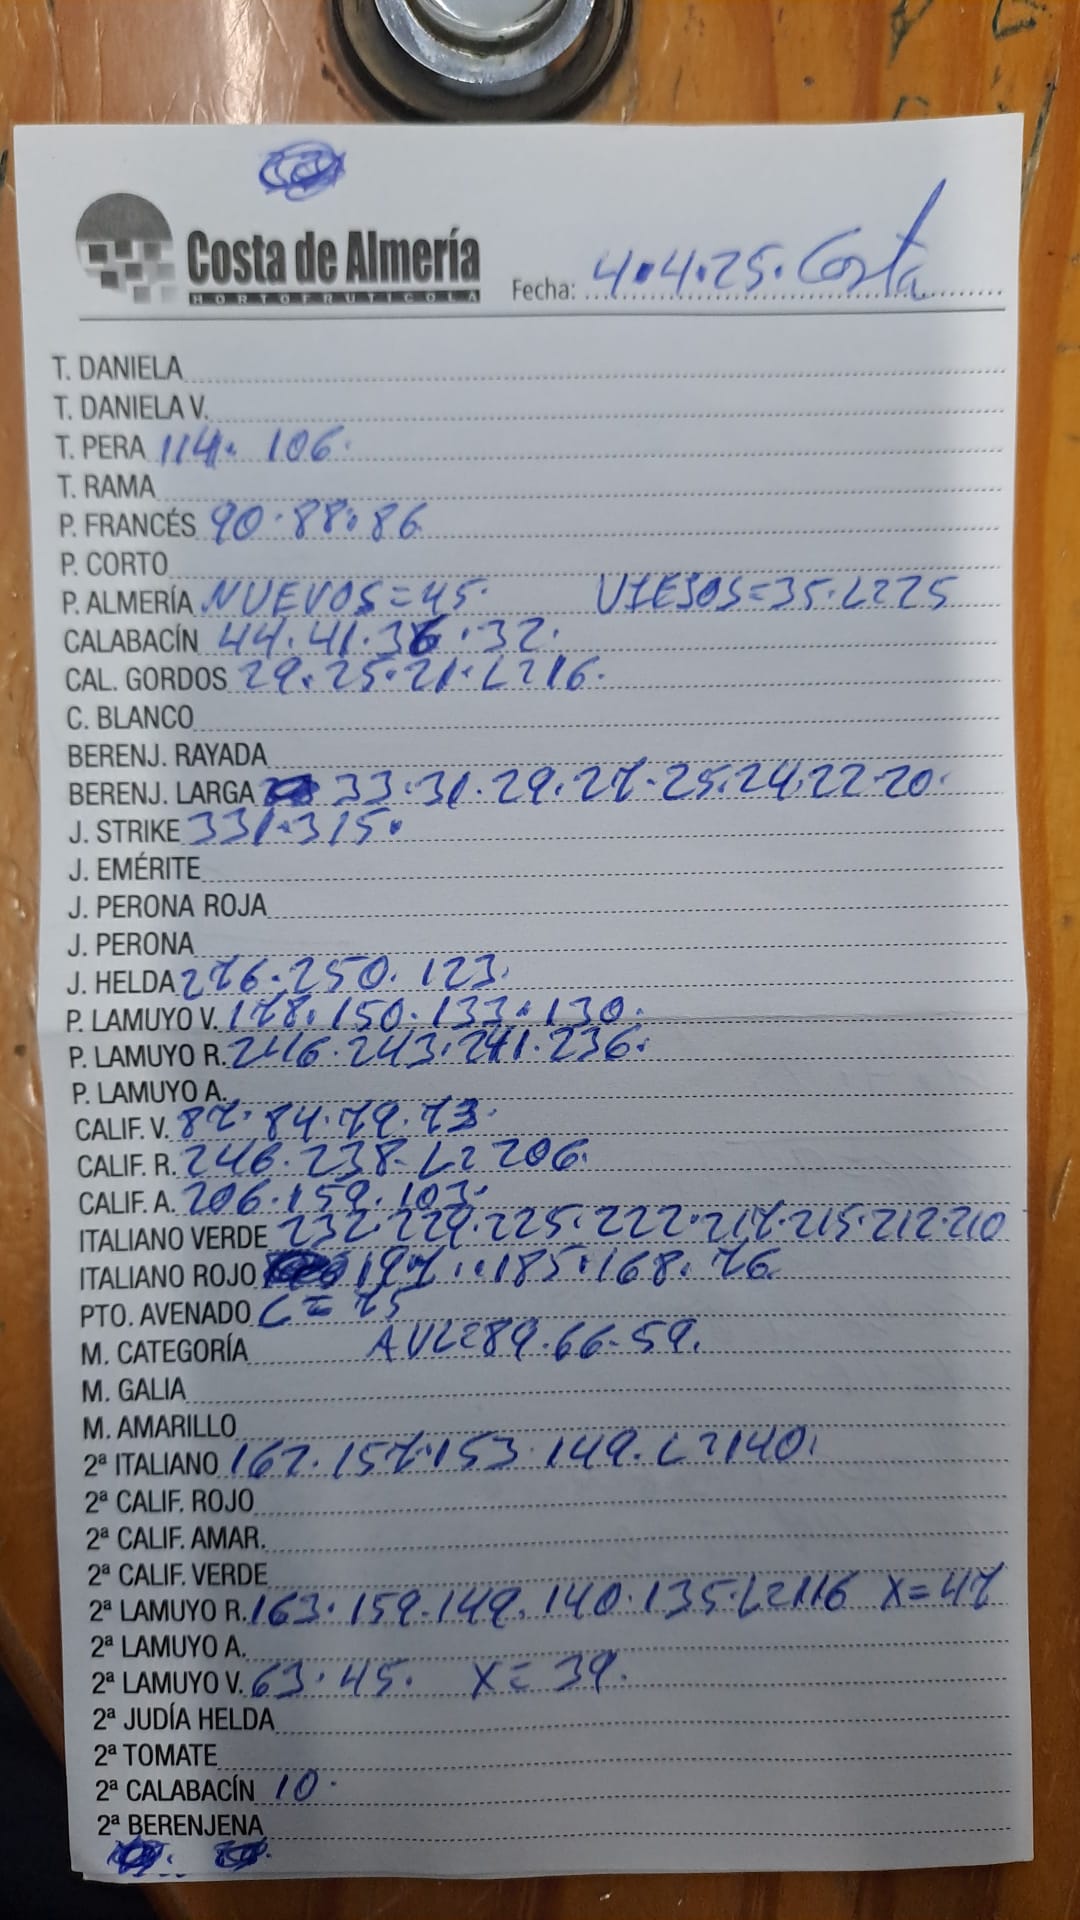 Costa de Almería
HORTOFRUTICOLA
Fecha: 4.4.25. Costa
T. DANIELA
T. DANIELA V.
T. PERA 114. 106.
T. RAMA
P. FRANCÉS 90.88.86
P. CORTO
P. ALMERÍA NUEVOS=45. VIEJOS=35.L225
CALABACÍN 44.41.36.32.
CAL. GORDOS 29.25.21.L216.
C. BLANCO
BERENJ. RAYADA
BERENJ. LARGA 33.31.29.27.25.24.22.20.
J. STRIKE 331.315.
J. EMÉRITE
J. PERONA ROJA
J. PERONA
J. HELDA 276.250. 123.
P. LAMUYO V. 178.150.133.130.
P. LAMUYO R. 246.243.241.236.
P. LAMUYO A.
CALIF. V. 87.84.79.73.
CALIF. R. 246.238.L2 206.
CALIF. A. 206.159.103.
ITALIANO VERDE 232.229.225.222.217.215.212.210
ITALIANO ROJO 197..185.168.76.
PTO. AVENADO C=75
M. CATEGORÍA AVL289.66.59.
M. GALIA
M. AMARILLO
2ª ITALIANO 162.157.153.149.L2140.
2ª CALIF. ROJO
2ª CALIF. AMAR.
2ª CALIF. VERDE
2ª LAMUYO R. 163.159.149.140.135.L2116 X=47
2ª LAMUYO A.
2ª LAMUYO V. 63.45. X=39.
2ª JUDÍA HELDA
2ª TOMATE
2ª CALABACÍN 10.
2ª BERENJENA